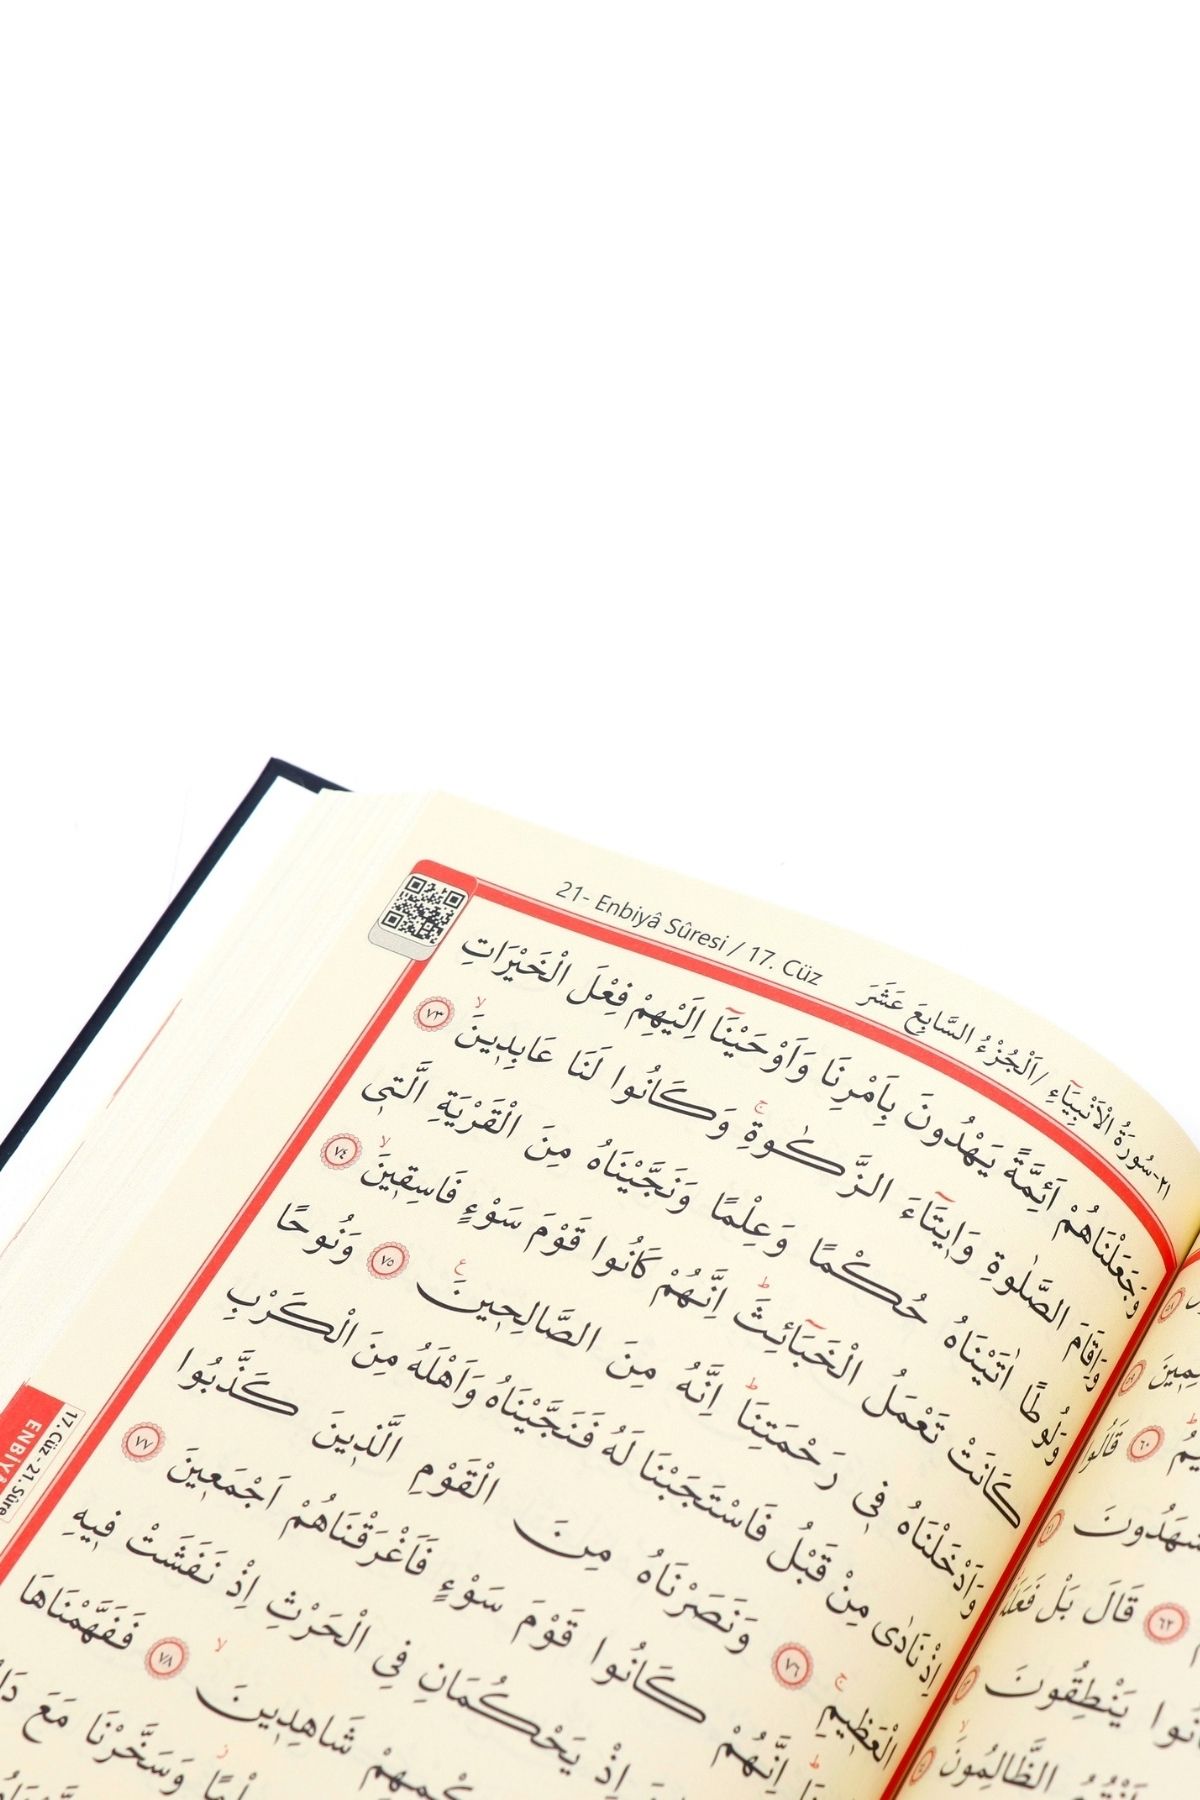 21- Enbiyâ Sûresi / 17. Cüz
٢١-سُورَةُ الْاَنْبِيَٓاءِ /اَلْجُزْءُ السَّابِعَ عَشَرَ
وَجَعَلْنَاهُمْ اَئِمَّةً يَهْدُونَ بِاَمْرِنَا وَاَوْحَيْنَٓا اِلَيْهِمْ فِعْلَ الْخَيْرَاتِ
وَاِقَامَ الصَّلٰوةِ وَا۪يتَٓاءَ الزَّكٰوةِۚ وَكَانُوا لَنَا عَابِد۪ينَۙ ٧٣
وَلُوطًا اٰتَيْنَاهُ حُكْمًا وَعِلْمًا وَنَجَّيْنَاهُ مِنَ الْقَرْيَةِ الَّت۪ي
كَانَتْ تَعْمَلُ الْخَبَٓائِثَۜ اِنَّهُمْ كَانُوا قَوْمَ سَوْءٍ فَاسِق۪ينَۙ ٧٤
وَاَدْخَلْنَاهُ ف۪ي رَحْمَتِنَاۜ اِنَّهُ مِنَ الصَّالِح۪ينَ۟ ٧٥ وَنُوحًا
اِذْ نَادٰى مِنْ قَبْلُ فَاسْتَجَبْنَا لَهُ فَنَجَّيْنَاهُ وَاَهْلَهُ مِنَ الْكَرْبِ
الْعَظ۪يمِۚ ٧٦ وَنَصَرْنَاهُ مِنَ الْقَوْمِ الَّذ۪ينَ كَذَّبُوا
اِنَّهُمْ كَانُوا قَوْمَ سَوْءٍ فَاَغْرَقْنَاهُمْ اَجْمَع۪ينَ ٧٧
اِذْ يَحْكُمَانِ فِي الْحَرْثِ اِذْ نَفَشَتْ ف۪يهِ
شَاهِد۪ينَۙ ٧٨ فَفَهَّمْنَاهَا
وَسَخَّرْنَا مَعَ
17. Cüz - 21. Sûre
٦٠ قَالُوا
٦٢ قَالَ بَلْ
يَنْطِقُونَ
الظَّالِمُونَۙ